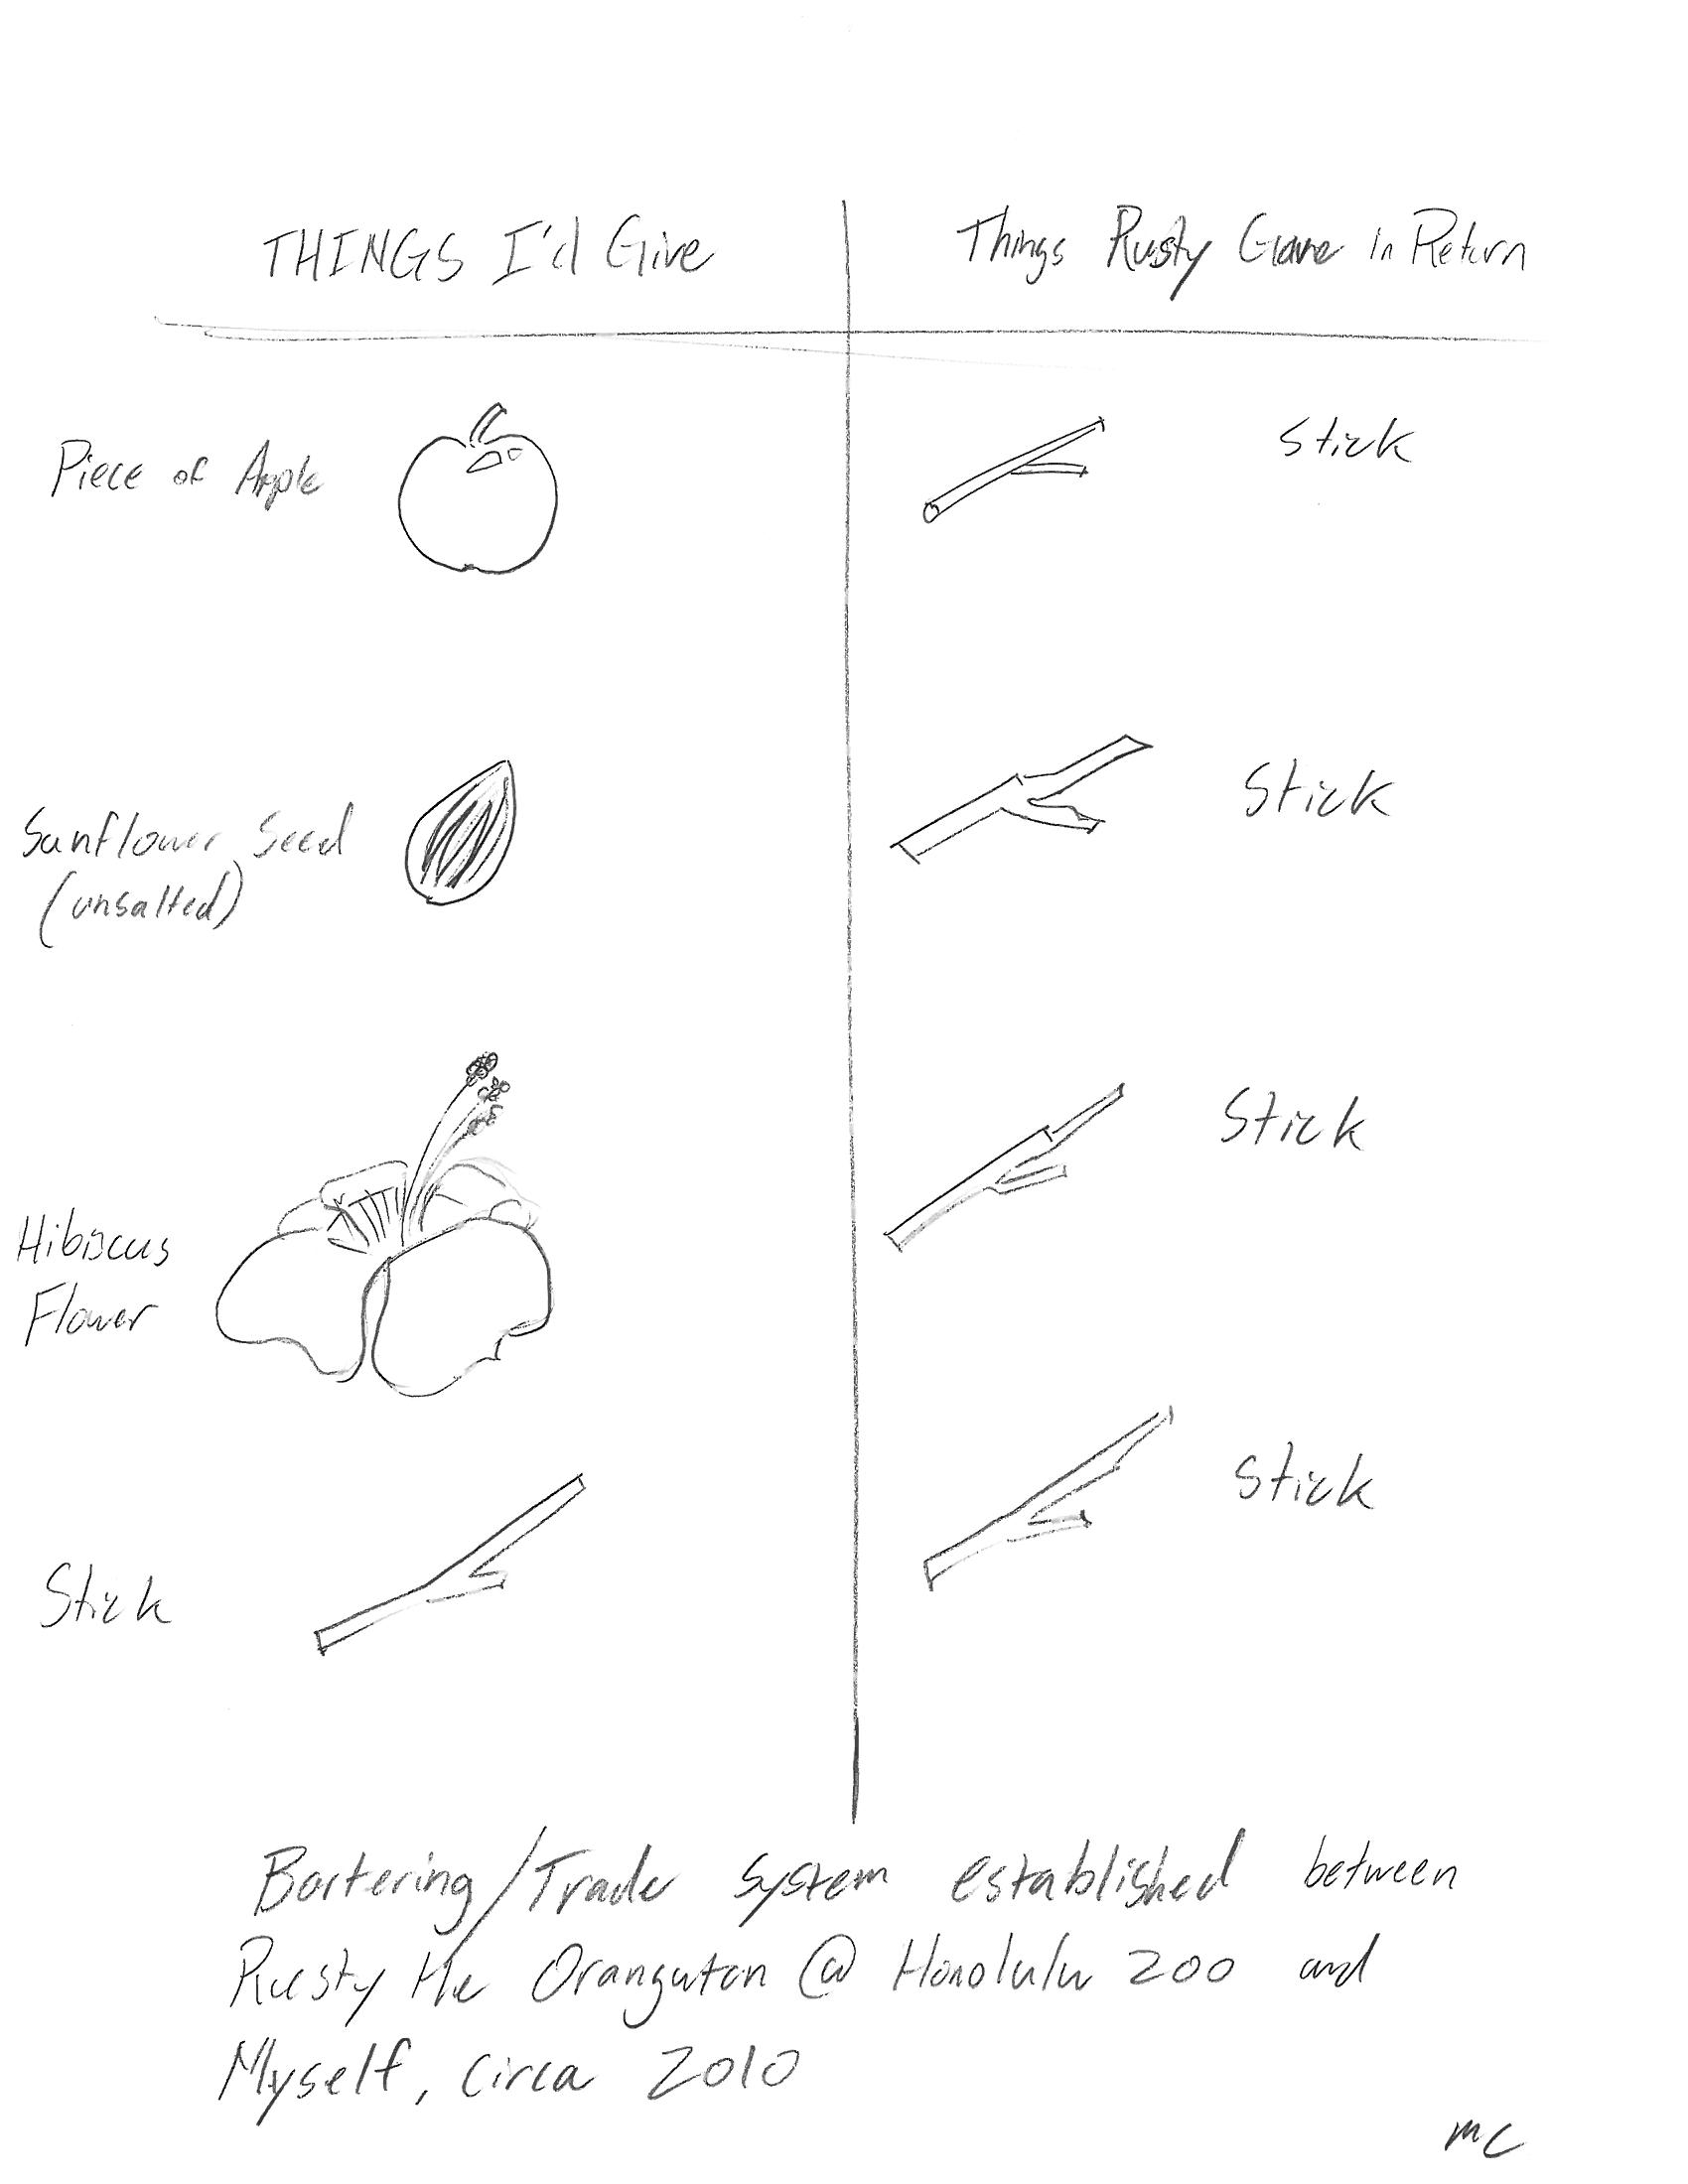 THINGS I'd Give
Things Rusty Gave in Return
Piece of Apple
Stick
Sunflower Seed
(unsalted)
Stick
Hibiscus
Flower
Stick
Stick
Stick
Bartering/Trade system established between
Rusty the Orangutan @ Honolulu Zoo and
Myself, circa 2010
MC